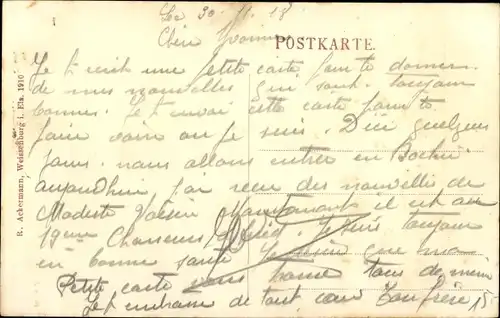 Le 30-11-18
Chère Yvonne
POSTKARTE.
Je t'écrit une petite carte pour te donner
de mes nouvelles qui sont toujour
bonnes. Je t'envoi cette carte pour te
faire voire ou je suis. Dici quelques
jours nous allons entrée en Bochie
aujourdhui j'ai recu des nouvelles de
Modeste il est au
19eme Chasseurs Je suis toujour
en bonne santé que ma
Petite carte vous trouve tous de meme
Je t'embrasse de tout cœur Ton frère
R. Ackermann, Weissenburg i. Els. 1910